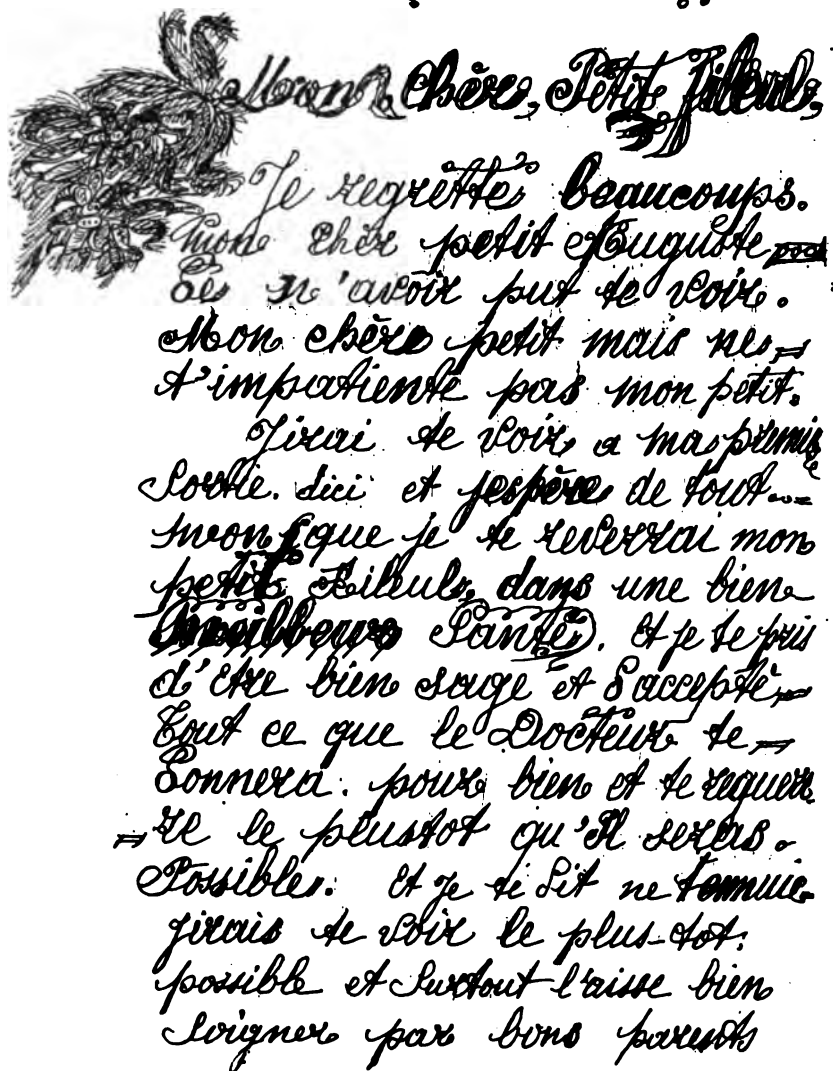 Mon chère, Petit filleuls,
Je regrette beaucoups.
mon cher petit Auguste
De n'avoir put te voir.
Mon chère petit mais ne
t'impatiente pas mon petit.
J'irai te voir a ma premie
Sortie. dici et jespère de tout
mon que je te reverrai mon
petit Filleuls, dans une bien
meilleure Santé). et je te pris
d'être bien sage et d'accepté
Tout ce que le Docteur te
Donnera. pour bien et te
re le plustot qu'Il seras.
Possibles. et Je te dit ne tennuie
jirais te voir le plus-tot.
possible et Surtout l'aisse bien
Soigner par bons parents